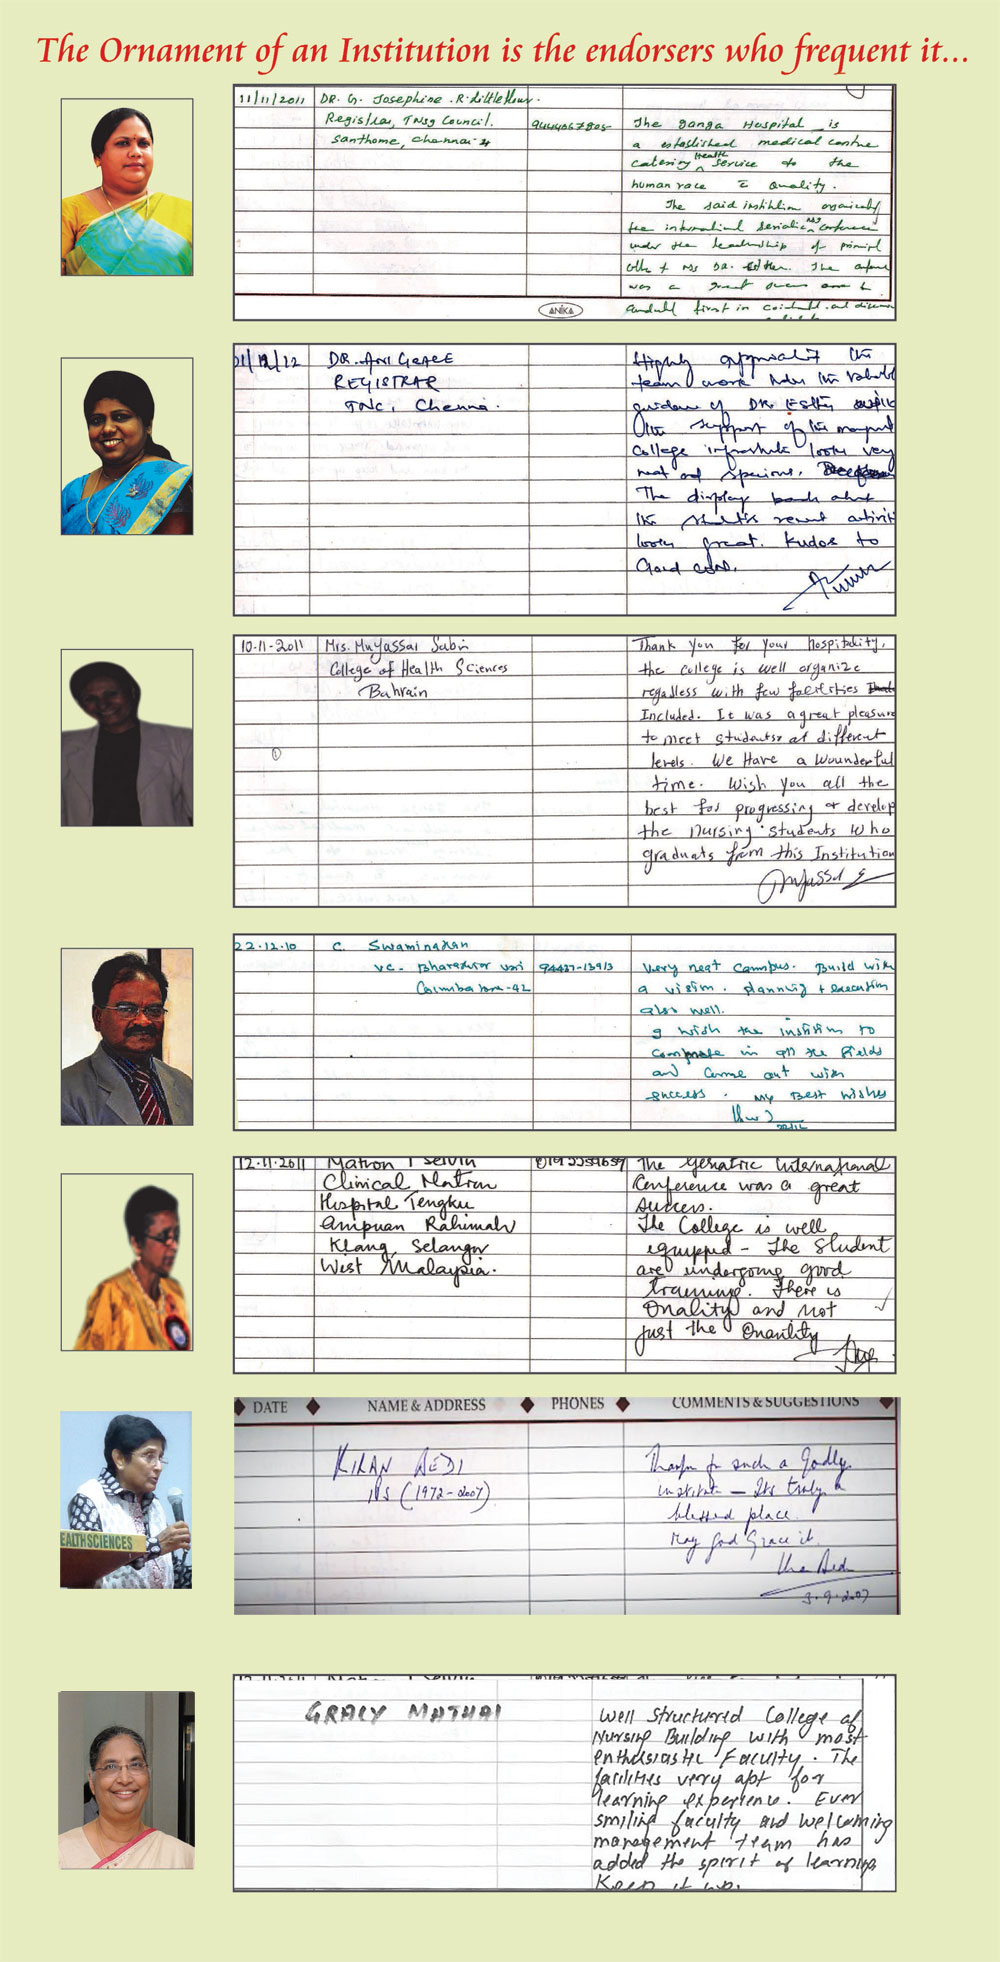 The Ornament of an Institution is the endorsers who frequent it...
11/11/2011 DR. G. Josephine .R. Littleflour.
Registrar, TNsg Council.
Santhome, Chennai-4
The Ganga Hospital is
a established medical centre
catering Health Service to the
human race c̄ Quality.
The said institution
the nsg conference
under the leadership of
DR. Esther. The
was a great
first in
ANIKA
DR. ANI GRACE
REGISTRAR
TNC, Chennai.
Highly the
team work under the
guidance of DR. Esther
the support of the
college looks very
neat and
The display about
the recent
looks great. Kudos to
Good
10-11-2011 Mrs. Muyassar Sabri
College of Health Sciences
Bahrain
Thank you for your hospitality,
the college is well organize
regadless with few facilities
Included. It was a great pleasure
to meet students at different
levels. We Have a wounderful
time. Wish you all the
best for progressing & develop
the nursing students who
graduats from this Institution
22.12.10 C. Swaminathan
VC. Bharathiar Uni 94437-13913
Coimbatore-42
Very neat campus. Build with
a vision. planning + execution
also well.
I wish the institution to
in all the fields
and come out with
success. My Best wishes
12.11.2011 Matron T Selvin
Clinical Matron
Hospital Tengku
Ampuan Rahimah
Klang, Selangor
West Malaysia.
The Geriatric International
Conference was a great
success.
The College is well
equipped - The student
are undergoing good
training. There is
Quality and not
just the Quantity
EALTH SCIENCES
DATE NAME & ADDRESS PHONES COMMENTS & SUGGESTIONS
KIRAN BEDI
IPS (1972-2007)
Thanks for such a Godly
institute - Its truly a
blessed place.
May God Grace it.
Kiran Bedi
3.9.2007
GRACY MATHAI
Well structured College of
Nursing Building with most
enthusiastic Faculty. The
facilities very apt for
learning experience. Ever
smiling faculty and welcoming
management team has
added the spirit of learning
Keep it up.